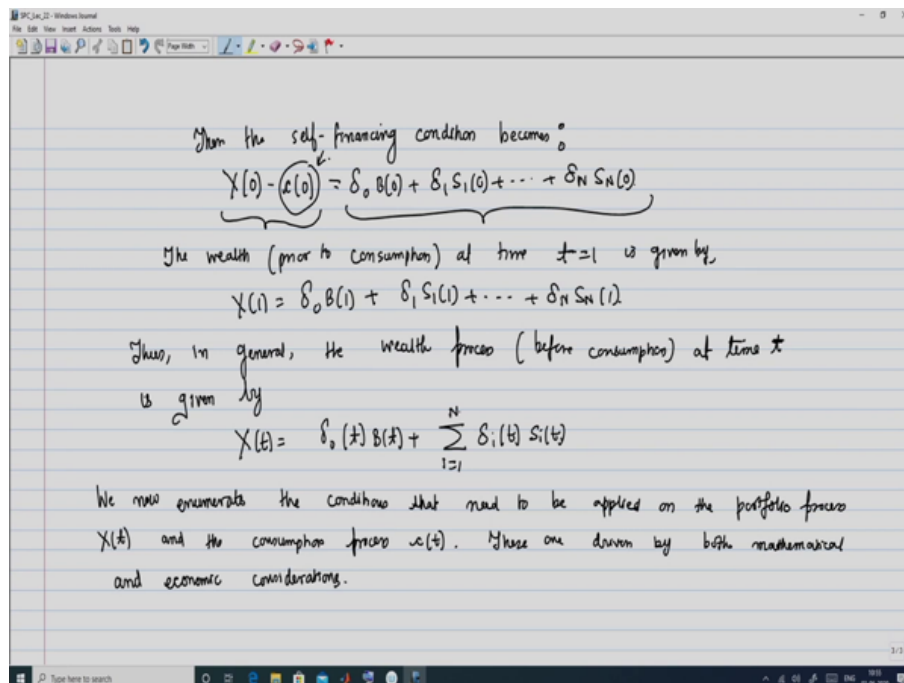 SPC_Lec_22 - Windows Journal
File Edit View Insert Actions Tools Help
Page Width
Then the self-financing condition becomes:
X(0) - c(0) = δ₀ B(0) + δ₁ S₁(0) + ⋯ + δN SN(0)
The wealth (prior to consumption) at time t=1 is given by,
X(1) = δ₀ B(1) + δ₁ S₁(1) + ⋯ + δN SN(1)
Thus, in general, the wealth process (before consumption) at time t
is given by
X(t) = δ₀(t) B(t) + ∑_{i=1}^{N} δi(t) Si(t)
We now enumerate the conditions that need to be applied on the portfolio process
X(t) and the consumption process c(t). These are driven by both mathematical
and economic considerations.
3/3
Type here to search
ENG